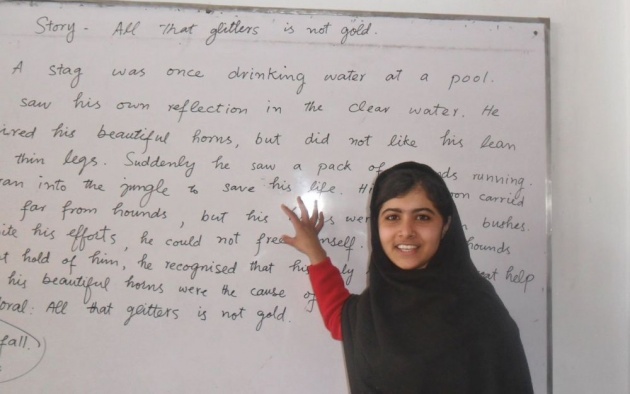 Story - All that glitters is not gold.
A stag was once drinking water at a pool.
saw his own reflection in the clear water. He
his beautiful horns, but did not like his lean
thin legs. Suddenly he saw a pack of running.
into the jungle to save his life. carried
far from hounds, but his bushes.
his efforts, he could not hounds
hold of him, he recognised that help
his beautiful horns were the cause of
All that glitters is not gold.
fall.